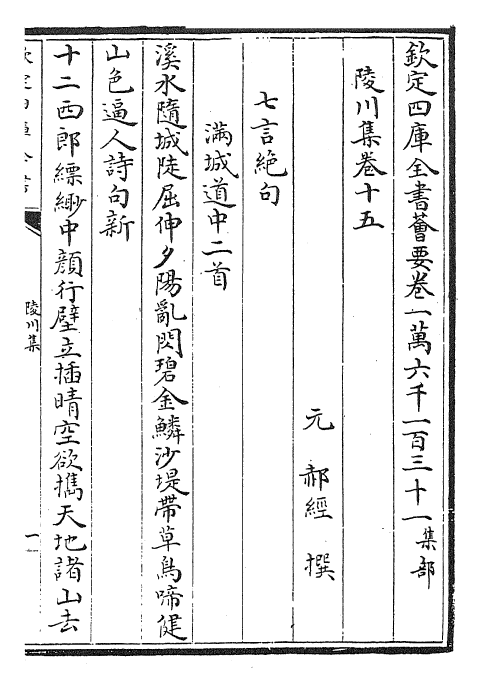 欽定四庫全書薈要卷一萬六千一百三十一集部
陵川集卷十五
元 郝經 撰
七言絶句
滿城道中二首
溪水隨城陡屈伸夕陽亂閃碧金鱗沙堤帶草鳥啼健
山色逼人詩句新
十二西郎縹緲中顔行壁立插晴空欲擕天地諸山去
陵川集
一